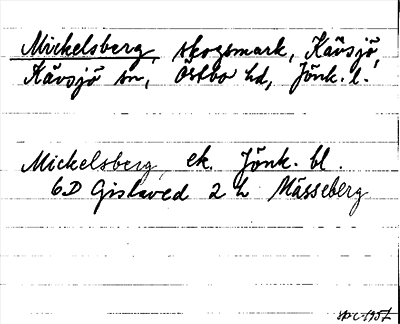 Mickelsberg, skogsmark, Kävsjö,
Kävsjö sn, Östbo hd, Jönk. l.
Mickelsberg, ek. Jönk. bl.
6D Gislaved 2 h Mässeberg